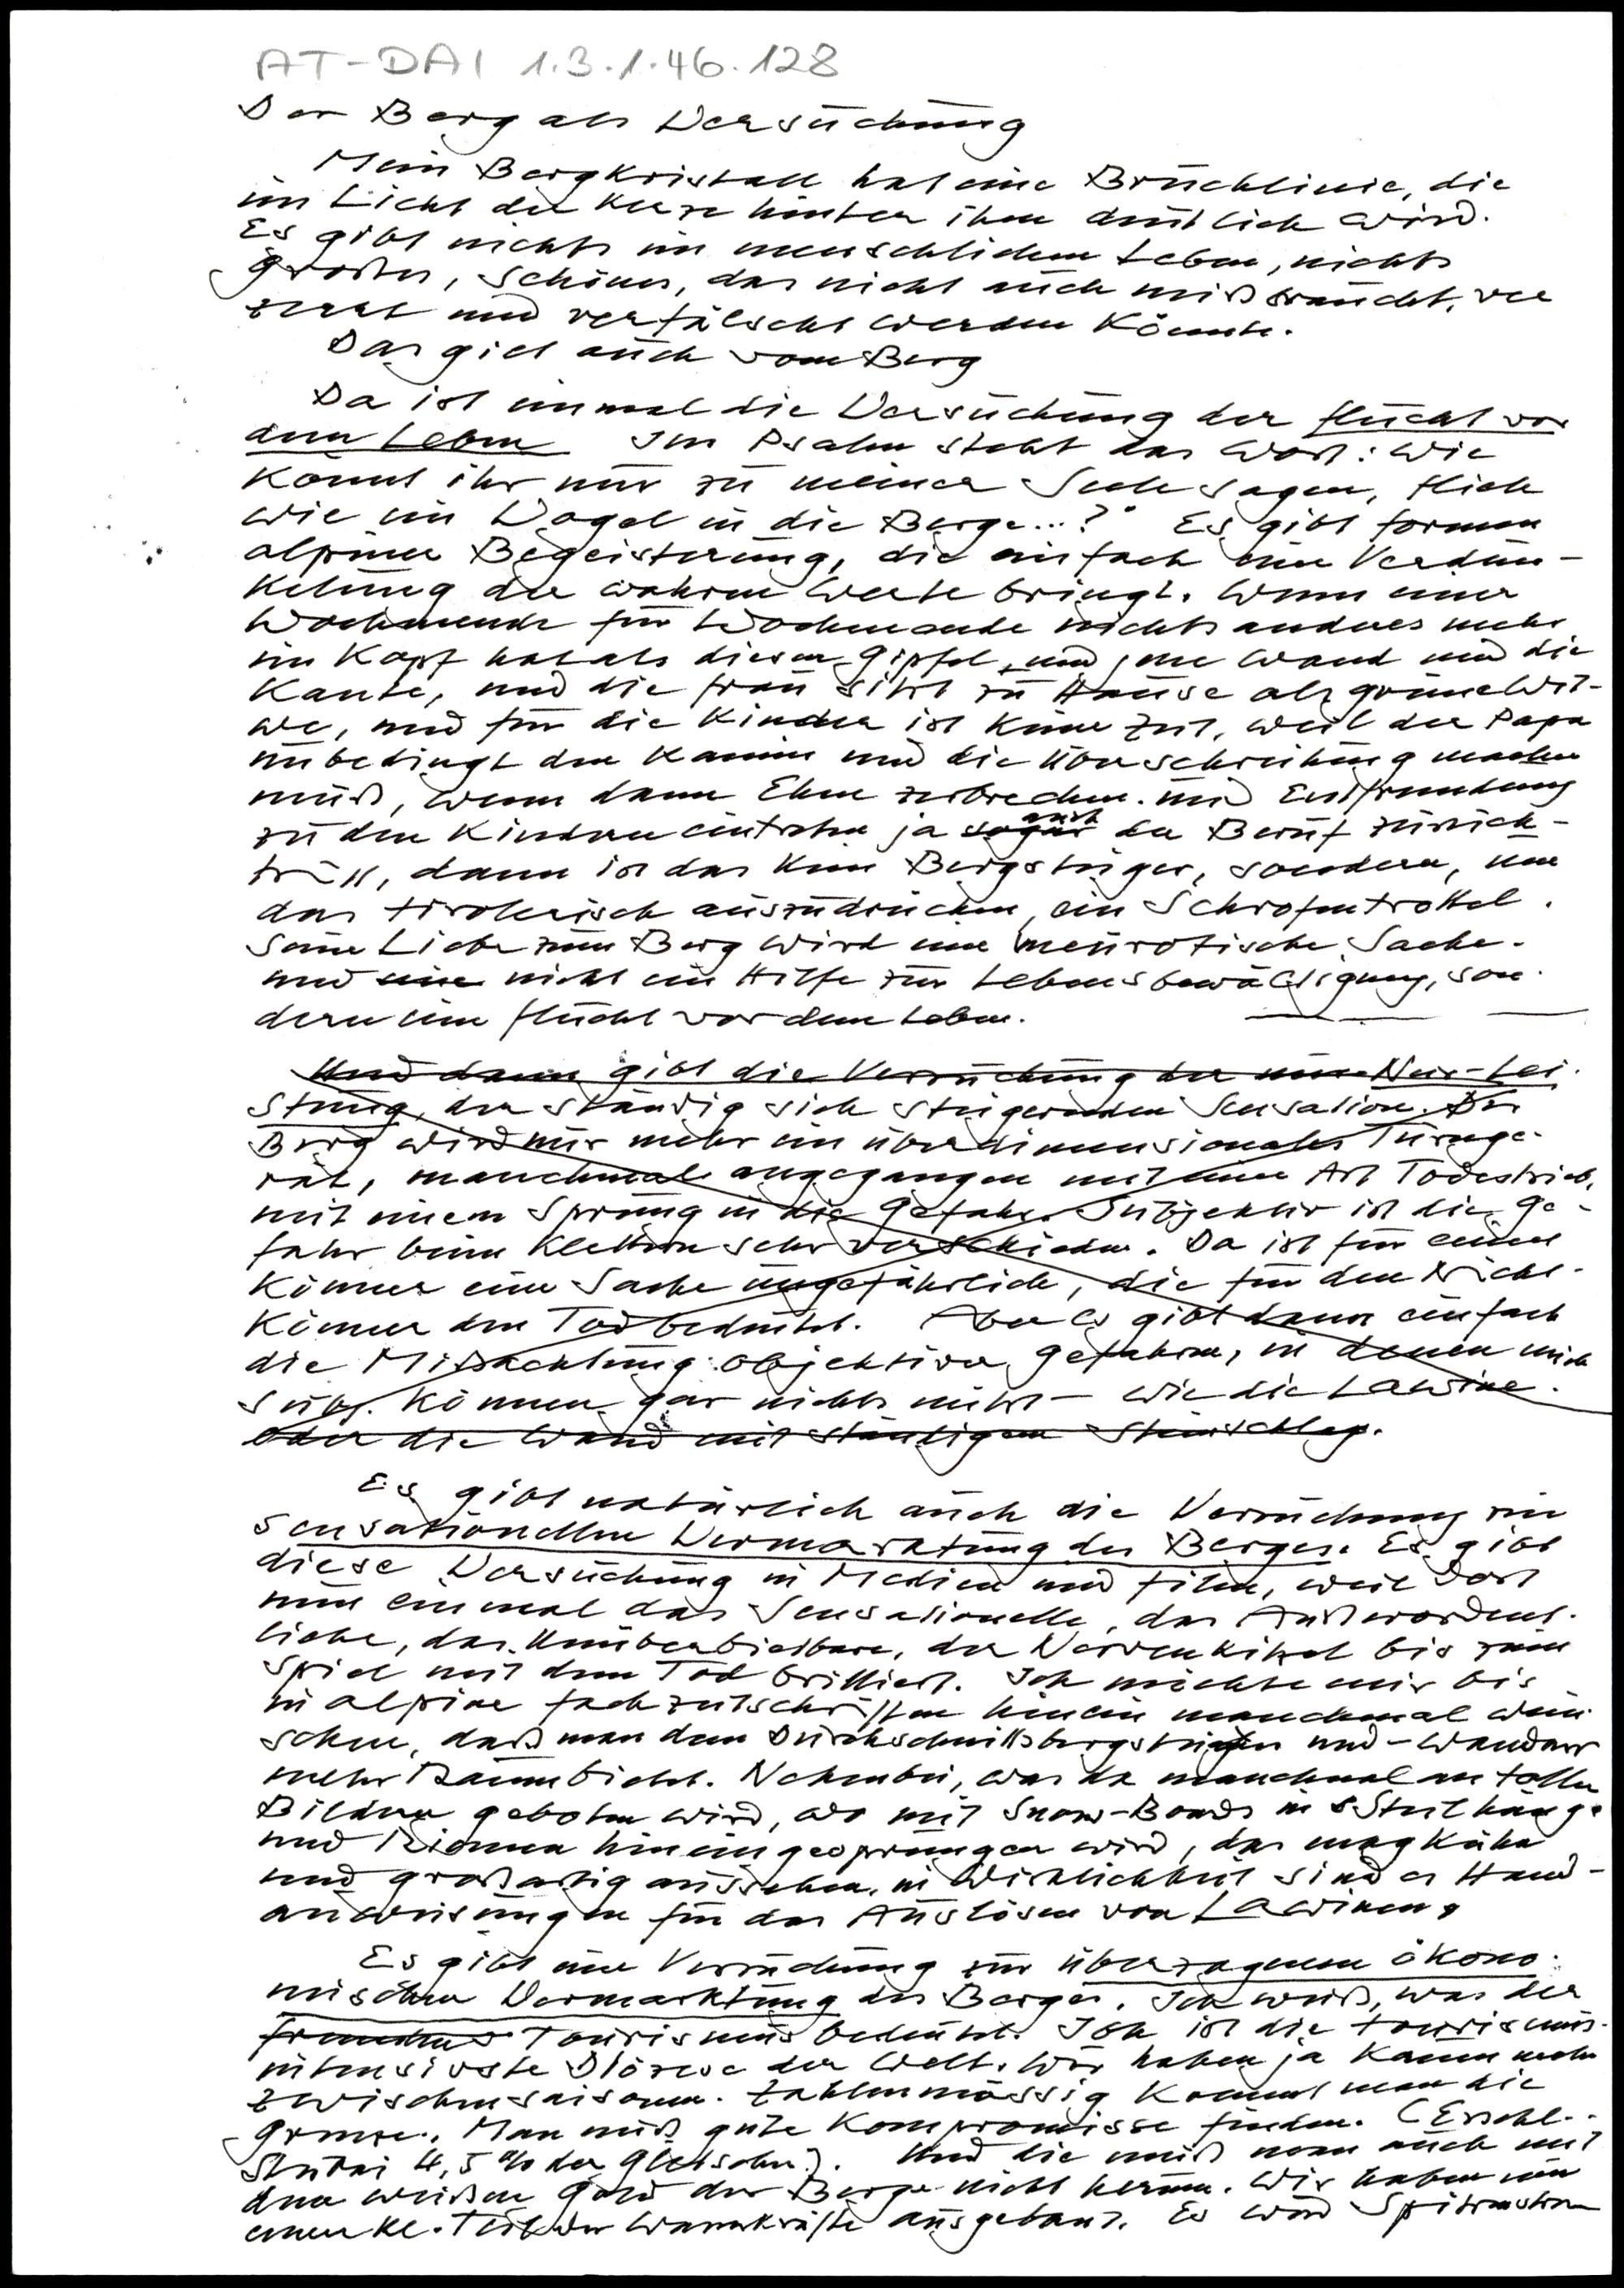 AT-DAI 1.3.1.46.128
Der Berg als Versuchung
Mein Bergkristall hat eine Bruchlinie, die
im Licht der Kerze hinter ihm deutlich wird.
Es gibt nichts im menschlichen Leben, nichts
großes, schönes, das nicht auch mißbraucht, ver
zerrt und verfälscht werden könnte.
Das gilt auch vom Berg
Da ist einmal die Versuchung der Flucht vor
dem Leben Im Psalm steht das Wort: Wie
könnt ihr nur zu meiner Seele sagen, flieh
wie ein Vogel in die Berge...?" Es gibt Formen
alpiner Begeisterung, die einfach eine Verdun-
kelung der wahren Werte bringt. Wenn einer
Wochenende für Wochenende nichts anderes mehr
im Kopf hat als diesen Gipfel, und jene Wand und die
Kante, und die Frau sitzt zu Hause als grüne Wit-
we, und für die Kinder ist keine Zeit, weil der Papa
unbedingt den Kamin und die Überschreitung machen
muß, wenn dann Ehen zerbrechen und Entfremdung
zu den Kindern eintreten ja sogar auch der Beruf zurück-
tritt, dann ist das kein Bergsteiger, sondern, um
das tirolerisch auszudrücken, ein Schrofentrottel.
Seine Liebe zum Berg wird eine neurotische Sache.
und eine nicht ein Hilfe zur Lebensbewältigung, son
dern eine Flucht vor dem Leben.
Und dann gibt die Versuchung der Nur-Lei-
stung, der ständig sich steigernden Sensation. Der
Berg wird nur mehr ein überdimensionales Turnge-
rät, manchmal angegangen mit einer Art Todestrieb,
mit einem Sprung in die Gefahr. Subjektiv ist die Ge-
fahr beim Klettern sehr verschieden. Da ist für einen
Könner eine Sache ungefährlich, die für den Nicht-
könner den Tod bedeutet. Aber es gibt dann einfach
die Mißachtung objektiver Gefahren, in denen mich
subj. Können gar nichts nützt - wie die Lawine.
oder die Wand mit ständigem Steinschlag.
Es gibt natürlich auch die Versuchung zur
sensationellen Vermarktung des Berges. Es gibt
diese Versuchung in Medien und Film, weil dort
nun einmal das Sensationelle, das Außerordent-
liche, das Unüberbietbare, der Nervenkitzel bis zum
Spiel mit dem Tod brilliert. Ich möchte mir bis
in alpine Fachzeitschriften hinein manchmal wün
schen, daß man dem Durchschnittsbergsteiger und -wanderer
mehr Raum bietet. Nebenbei, was da manchmal an tollen
Bildern geboten wird, wo mit Snow-Boards in Steilhänge
und Rinnen hineingesprungen wird, das mag kühn
und großartig aussehen, in Wirklichkeit sind es Hand-
anweisungen für das Auslösen von Lawinen.
Es gibt eine Versuchung zur überzogenen ökono-
mischen Vermarktung des Berges. Ich weiß, was der
Tourismus bedeutet. Ibk ist die tourismus-
intensivste Diözese der Welt. Wir haben ja kaum mehr
Zwischensaisonen. Zahlenmässig kommt man die
Grenze. Man muß gute Kompromisse finden. (Erschl.
Stubai 4,5 % der Gletscher). Und die muß man auch mit
dem weißen Gold der Berge nicht herum. Wir haben nun
einen kl. Teil der Wasserkräfte ausgebaut. Es wird Spitzenstrom